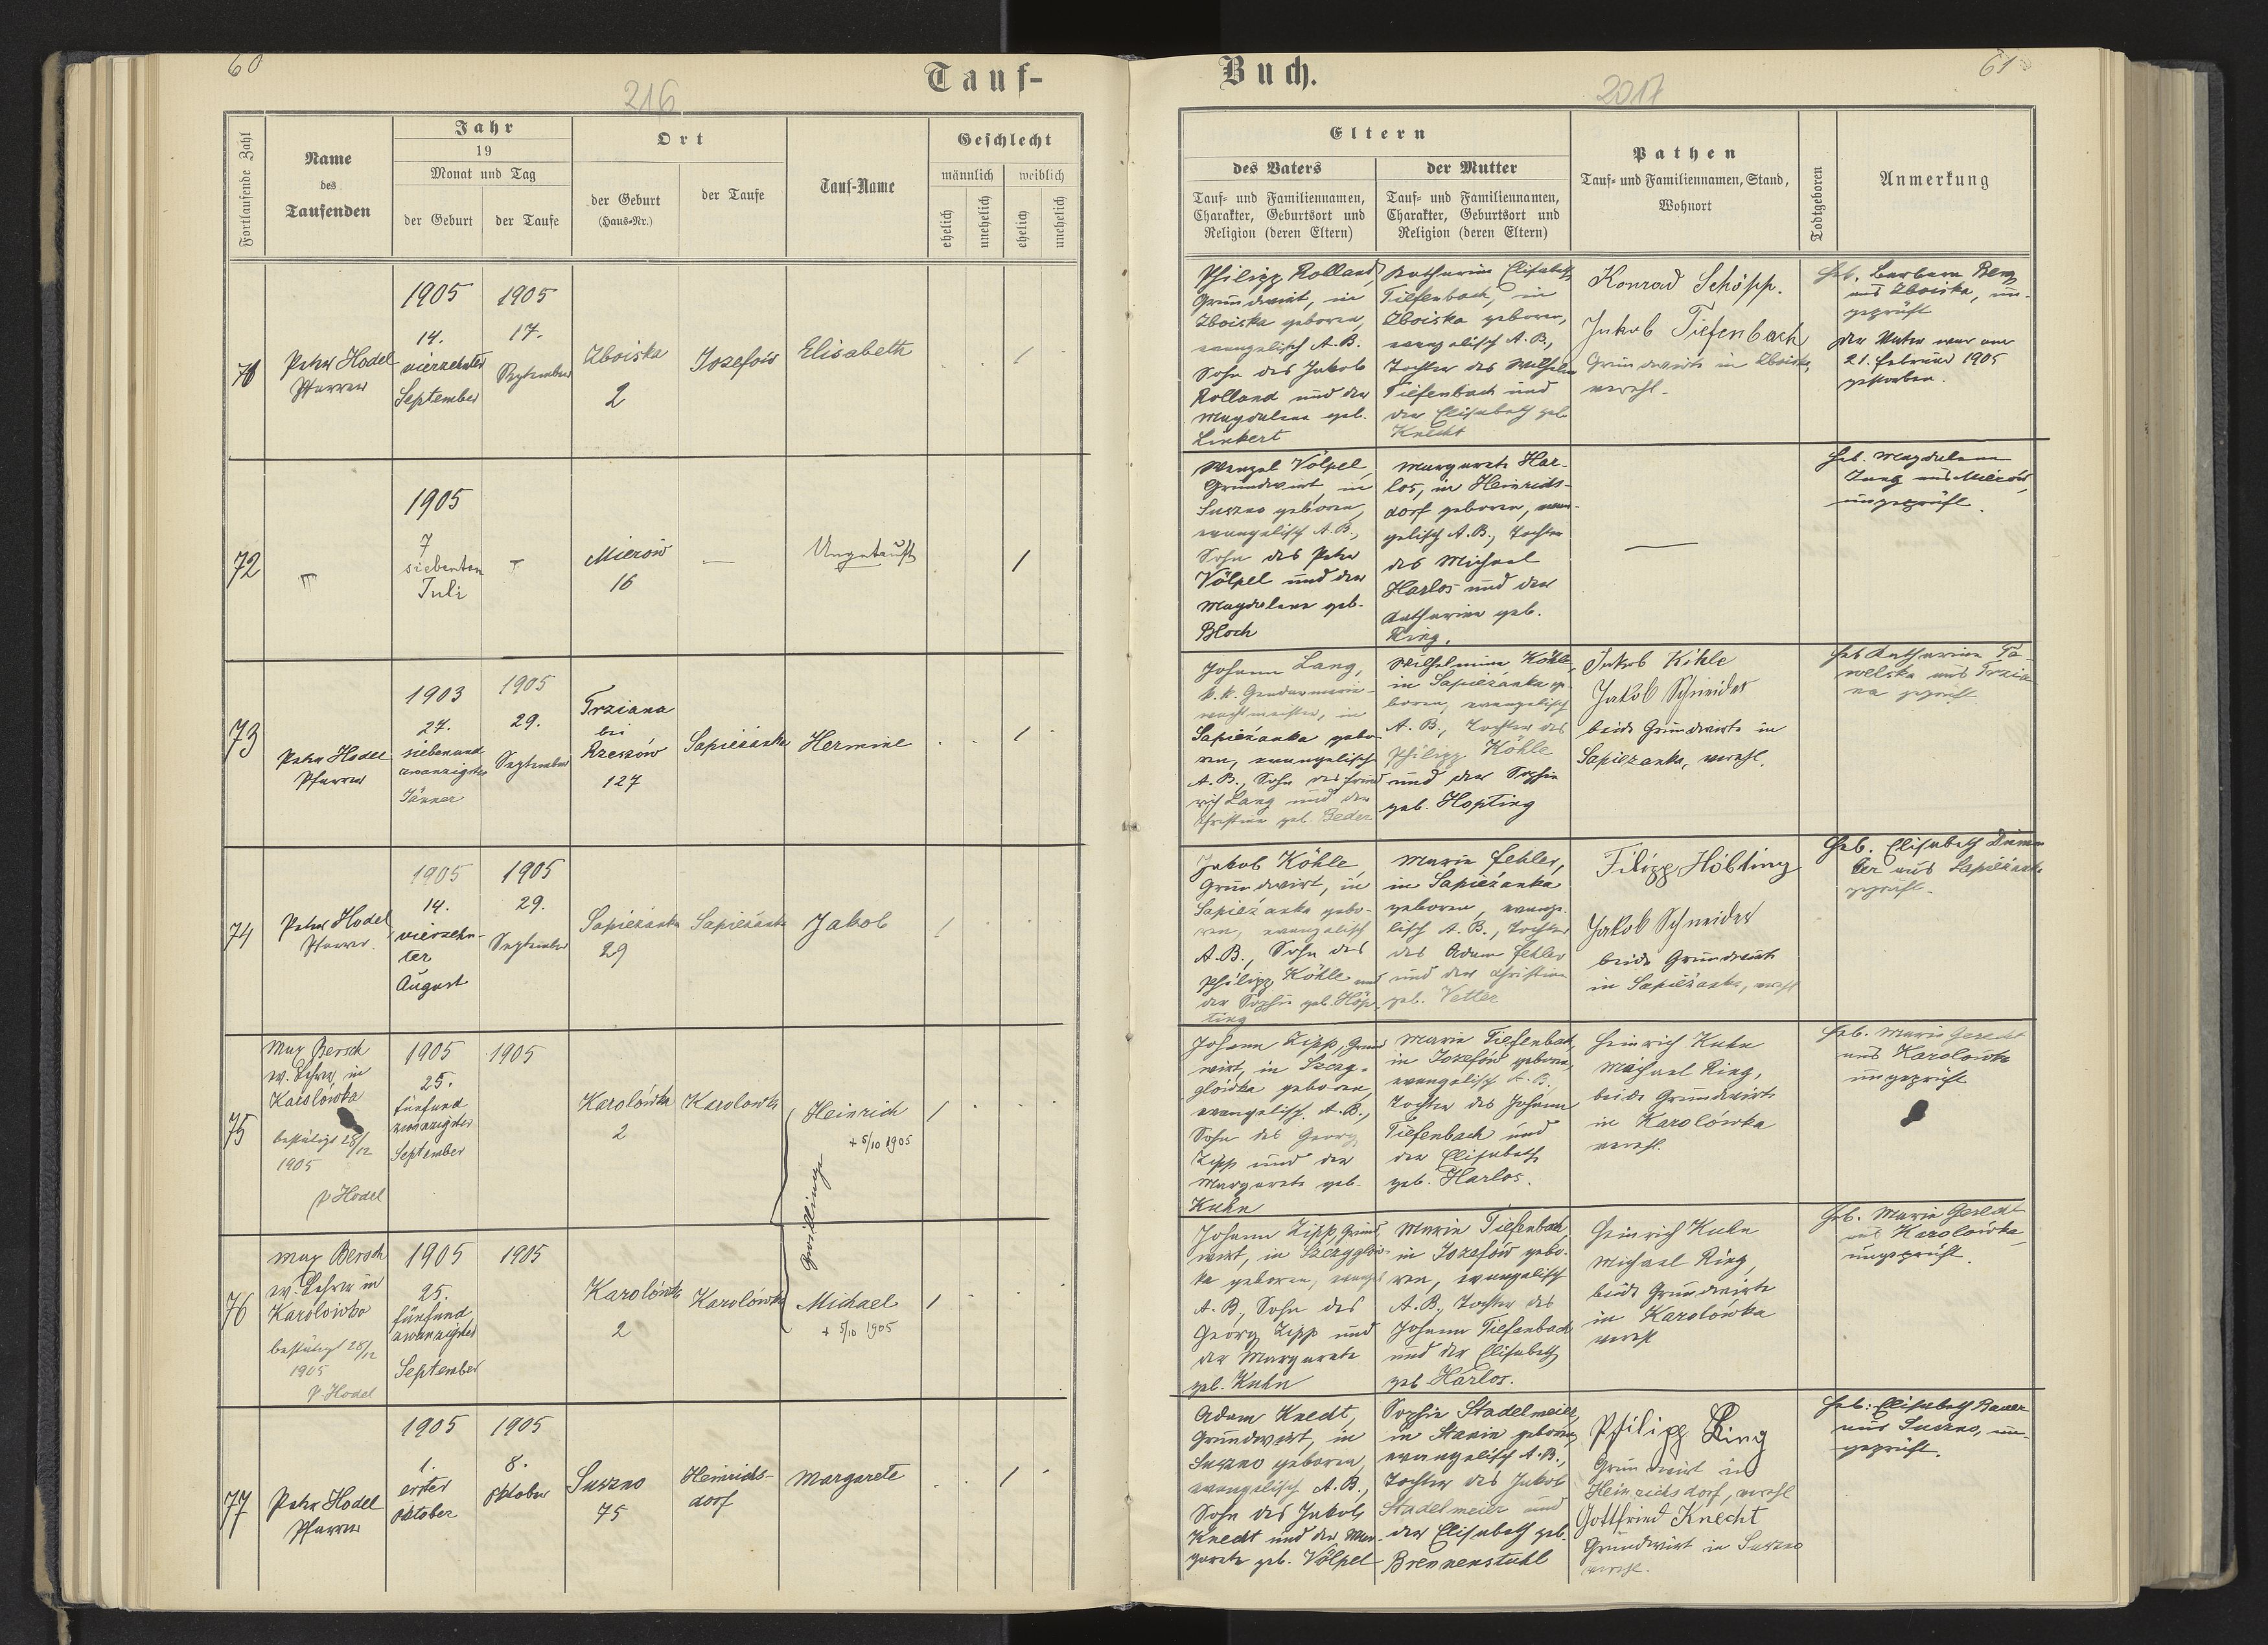 60
216
Tauf-
Fortlaufende Zahl
Name
des
Taufenden
Jahr
19
Monat und Tag
der Geburt
der Taufe
Ort
der Geburt
(Haus-Nr.)
der Taufe
Tauf-Name
Geschlecht
männlich
weiblich
ehelich
unehelich
ehelich
unehelich
71
Peter Hodel
Pfarrer
1905
14.
vierzehnter
September
1905
17.
September
Zboiska
2
Jozefów
Elisabeth
72
1905
7
siebenten
Juli
Mierów
16
—
Ungetauft
73
Peter Hodel
Pfarrer
1903
27.
siebenund
zwanzigster
Jänner
1905
29.
September
Trziana
bei
Rzeszów
127
Sapiezanka
Hermine
74
Peter Hodel
Pfarrer
1905
14.
vierzehn-
ter
August
1905
29.
September
Sapiezanka
29
Sapiezanka
Jakob
75
Max Bersch
ev. Lehrer in
Karolówka
bestätigt 28/12
1905
P Hodel
1905
25.
fünfund
zwanzigster
September
1905
Karolówka
2
Karolówka
Heinrich
+ 5/10 1905
Zwillinge
76
Max Bersch
ev. Lehrer in
Karolówka
bestätigt 28/12
1905
P. Hodel
1905
25.
fünfund
zwanzigster
September
1905
Karolówka
2
Karolówka
Michael
+ 5/10 1905
77
Peter Hodel
Pfarrer
1905
1.
erster
Oktober
1905
8.
Oktober
Suszno
75
Heinrichs-
dorf
Margarete
Buch.
2017
61
Eltern
des Vaters
Tauf- und Familiennamen,
Charakter, Geburtsort und
Religion (deren Eltern)
der Mutter
Tauf- und Familiennamen,
Charakter, Geburtsort und
Religion (deren Eltern)
Pathen
Tauf- und Familiennamen, Stand,
Wohnort
Todtgeboren
Anmerkung
Philipp Rolland,
Grundwirt, in
Zboiska geboren,
evangelisch A. B.
Sohn des Jakob
Rolland und der
Magdalena geb.
Linkert
Katharina Elisabeth
Tiefenbach, in
Zboiska geboren,
evangelisch A. B.,
Tochter des Wilhelm
Tiefenbach und
der Elisabeth geb
Knecht
Konrad Schöpp.
Jakob Tiefenbach
Grundwirte in Zboiska,
verehl.
Heb. Barbara Benz
aus Zboiska, un-
geprüft
Der Vater war am
21. Februar 1905
gestorben.
Wenzel Völpel,
Grundwirt, in
Suszno geboren,
evangelisch A. B.,
Sohn des Peter
Völpel und der
Magdalena geb.
Bloch
Margarete Har-
los, in Heinrichs-
dorf geboren, evan-
gelisch A. B., Tochter
des Michael
Harlos und der
Katharina geb.
Ring.
—
Heb. Magdalena
Jung aus Mierów,
ungeprüft.
Johann Lang,
k. k. Gendarmerie-
wachtmeister, in
Sapiezanka gebo-
ren, evangelisch
A. B., Sohn des Fried
rich Lang und der
Christina geb. Beder
Wilhelmina Köhle,
in Sapiezanka ge-
boren, evangelisch
A. B., Tochter des
Philipp Köhle
und der Sophie
geb. Hopting
Jakob Köhle
Jakob Schneider
beide Grundwirte in
Sapiezanka, verehl.
Heb Katharina Pa-
welska aus Trzia-
na geprüft
Jakob Köhle,
Grundwirt, in
Sapiezanka gebo-
ren, evangelisch
A. B., Sohn des
Philipp Köhle und
der Sophie geb. Höp-
ting
Maria Fehler,
in Sapiezanka
geboren, evange-
lisch A. B., Tochter
des Adam Fehler
und der Christina
geb. Vetter
Filipp Höbting
Jakob Schneider
beide Grundwirte
in Sapiezanka, verehl
Heb. Elisabeth
aus Sapiezanka
geprüft.
Johann Zipp, Grund
wirt, in Szczy-
glówka geboren,
evangelisch. A. B.,
Sohn des Georg
Zipp und der
Margarete geb.
Kuhn
Maria Tiefenbach,
in Jozefów geboren,
evangelisch A. B.,
Tochter des Johann
Tiefenbach und
der Elisabeth
geb. Harlos.
Heinrich Kuhn
Michael Ring,
beide Grundwirte
in Karolówka
verehl.
Heb. Maria Gerecht
aus Karolówka
ungeprüft
Johann Zipp, Grund
wirt, in Szczyglów-
ka geboren, evangel
A. B., Sohn des
Georg Zipp und
der Margarete
geb. Kuhn
Maria Tiefenbach,
in Jozefów gebo-
ren, evangelisch
A. B., Tochter des
Johann Tiefenbach
und der Elisabeth
geb Harlos.
Heinrich Kuhn
Michael Ring,
beide Grundwirte
in Karolówka
verehl
Heb. Maria Gerecht
aus Karolówka
ungeprüft.
Adam Knecht,
Grundwirt, in
Suszno geboren,
evangelisch A. B.,
Sohn des Jakob
Knecht und der Mar-
garete geb. Völpel
Sophie Stadelmeier,
in Stanin geboren,
evangelisch A. B.,
Tochter des Jakob
Stadelmeier und
der Elisabeth geb.
Brennenstuhl
Philipp Ring
Grundwirt in
Heinrichsdorf, verehl
Gottfried Knecht
Grundwirt in Suszno
verehl.
Heb: Elisabeth Bauer
aus Suszno, un-
geprüft.